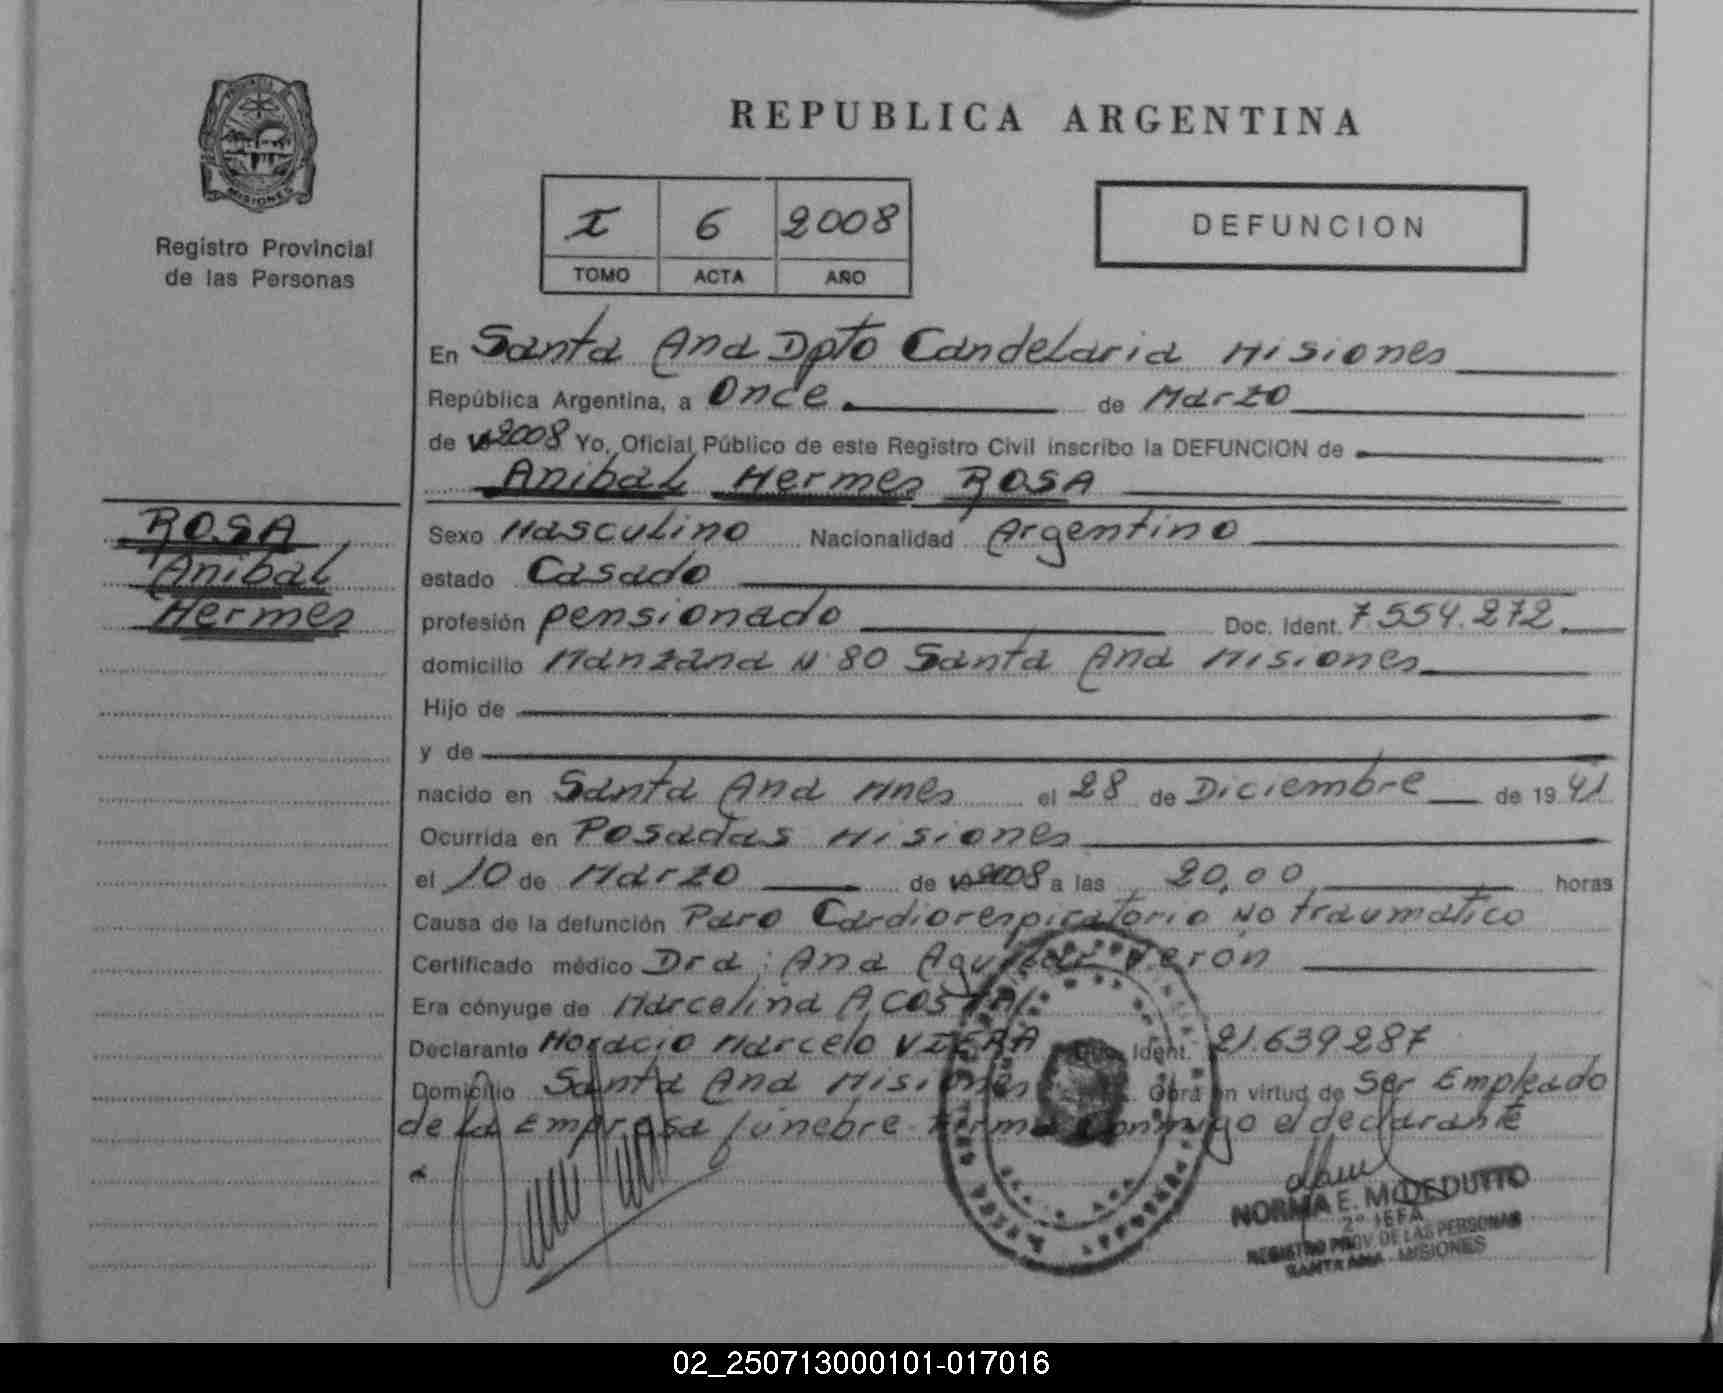 REPUBLICA ARGENTINA
PROVINCIA
MISIONES
Registro Provincial
de las Personas
I 6 2008
TOMO ACTA AÑO
DEFUNCION
En Santa Ana Dpto Candelaria Misiones
República Argentina, a Once de Marzo
de 2008 Yo, Oficial Público de este Registro Civil inscribo la DEFUNCION de
Anibal Hermes ROSA
ROSA
Anibal
Hermes
Sexo Masculino Nacionalidad Argentino
estado Casado
profesión pensionado Doc. Ident. 7.554.272
domicilio Manzana N° 80 Santa Ana Misiones
Hijo de
y de
nacido en Santa Ana Mnes el 28 de Diciembre de 19 41
Ocurrida en Posadas Misiones
el 10 de Marzo de 2008 a las 20,00 horas
Causa de la defunción Paro Cardiorespiratorio No traumático
Certificado médico Dra: Ana Aguilar Verón
Era cónyuge de Marcelina ACOSTA
Declarante Horacio Marcelo VIERA Doc. Ident. 21.639.287
Domicilio Santa Ana Misiones Obra en virtud de Ser Empleado
de la Empresa fúnebre. Firma conmigo el declarante
NORMA E. M. DEDUTTO
2° JEFA
REGISTRO PROV. DE LAS PERSONAS
SANTA ANA - MISIONES
02_250713000101-017016